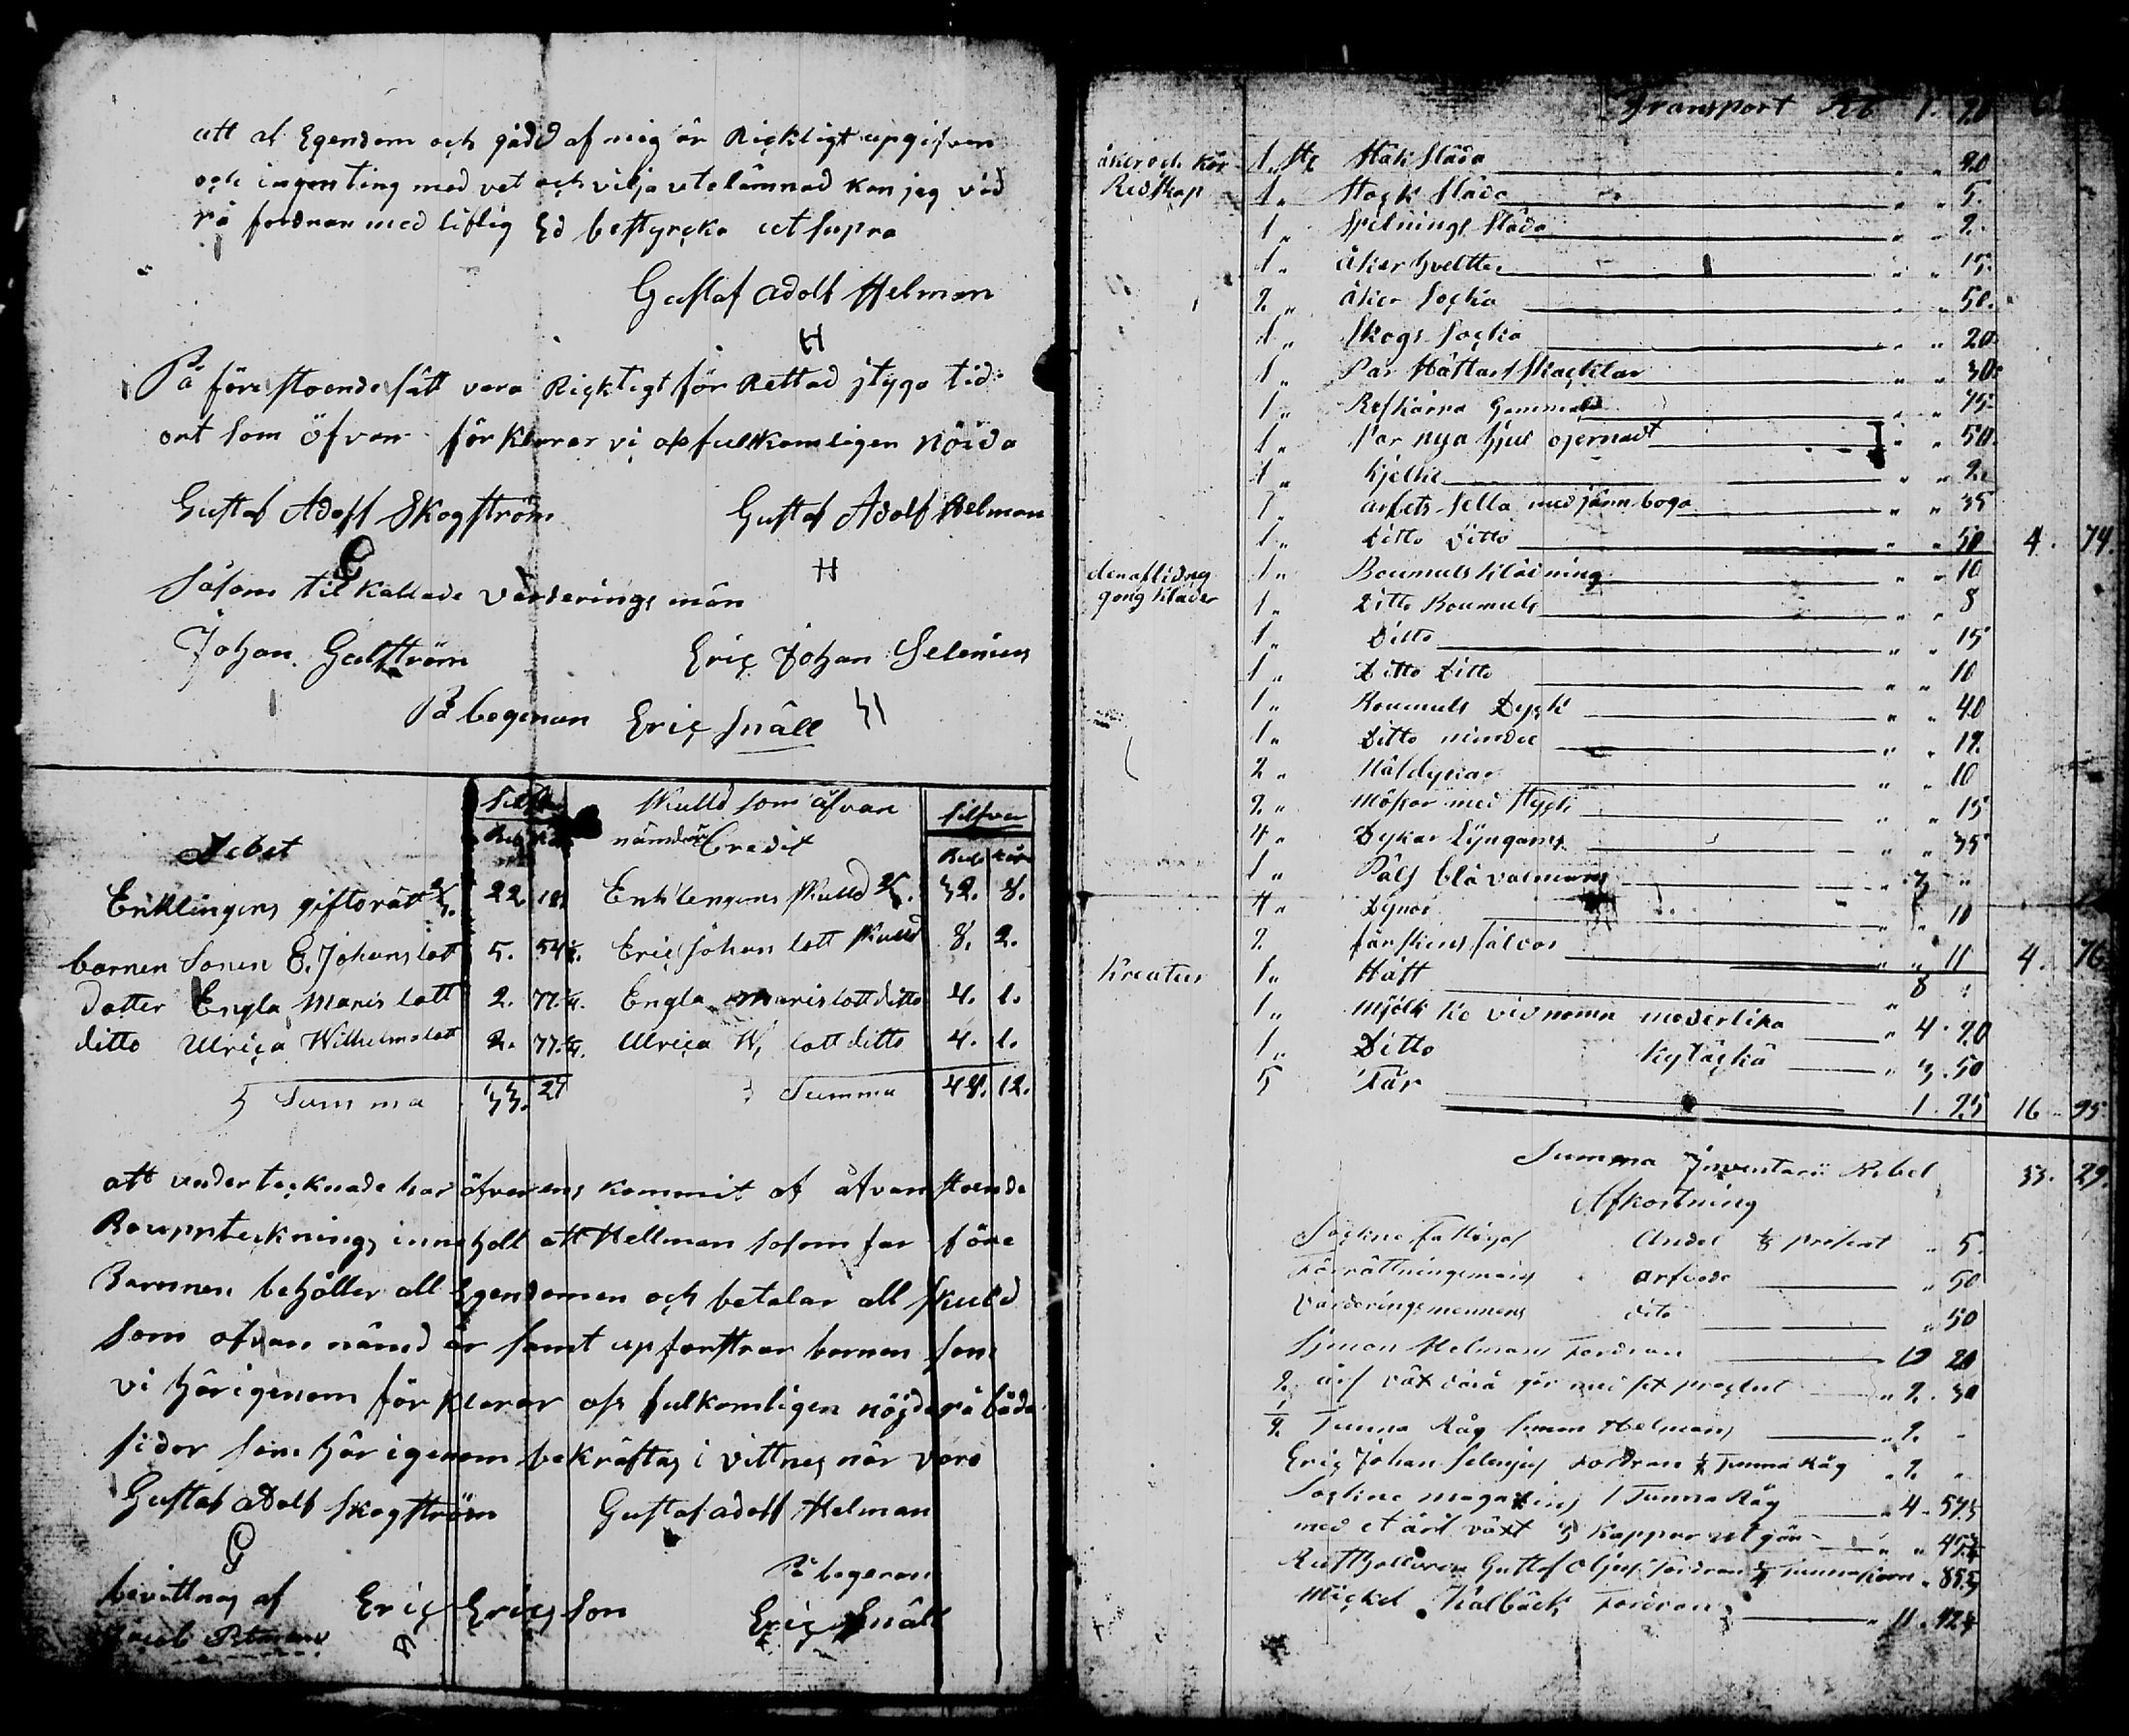 att al Egendom och gäld af mig är Ricktigt upgifven
och ingenting med vet och vilja utelämnad kan jeg vid
på fordran med liflig Ed bestyrcka ut supra
Gustaf Adolf Helman
H
På föreståendesätt vara Ricktigt för Rettad jtyga tid
ort som öfvan förklarar vi oss fulkomligen nöida
Gustaf Adolf Skogström Gustaf Adolf Helman
G H
Såsom til kallade värderings män
Johan Galström Eric Johan Selenius
På begeran Eric Snäll
Debet
Skulld som äfvan
nämd är Credit
silfver
Enklingens giftorätt 22. 18. Enklingens skulld 32. 8.
barnen Sonen E. Johans lott 5. 54 Eric Johan lott skulld 8. 2.
dotter Engla Maris lott 2. 77. Engla Maris lott ditto 4. 1.
ditto Ulrica Wilhelms lott 2. 77. Ulrica W, lott ditto 4. 1.
Summa 33. 27 Summa 48. 12.
att undertecknade har öfverens kommit af åfvanstoende
Boupptecknings inneholt att Hellman sosom far före
Barnnen behåller all Egendomen och betalar all skuld
som ofvan nämd är samt upfostrar barnen som
vi härigenom för klarar oss fulkomligen nöjda på båda
sidor som här igenom bekräftas i vittnes när varo
Gustaf Adolf Skogström Gustaf adolf Helman
G
På begeran
bevittnas af Eric Ericsson Eric Snäll
Transport Rb 1. 20
åker och kör 1 st Häk släda 20
Redskap 1 " Stock släda " " 5.
1 " Spilnings släda " " 2.
1 " åker hveltter " " 15.
2 " åker Sockia " " 50.
1 " Skogs Sockia " " 20
1 " Par Hättar Skacklar " " 30
1 " Refkärra Gammal " " 75
1 " Par nya hjul ojernadt " " 50
1 " Kjelke " " 2.
1 " arbets sella med järn boga " " 35
1 " Ditto Ditto " " 50 4. 74.
den aflidnes 1 " Boumuls klädning " " 10
gong kläder 1 " Ditto Boumuls " " 8
1 " Ditto " " 15
1 " Ditto Ditto " " 10
1 " Boumuls Dyck " " 40
1 " Ditto mindre " " 12.
2 " Halsdykar " " 10
2 " Mössor med stycke " " 15
4 " Dykar Lyngarns " " 35
1 " Päls blå valmans
4 " 10
2. fårskins fälvar " " 11 4. 76
Kreatur 1 " Häst 8
1 " Mjölk ko vid namn moderlika " 4. 20
1 " Ditto Kytäckä " 3. 50
5 Får 1. 25 16. 95
Summa Inventarii Rubel 33. 29.
Afkortning
Sockne fattigas Andel 1/8 prosent " 5.
Förrättningsmans arfvode " 50
Värderingsmennens dito " 50
Simon Helmans fordran 12 20
2 års växt därå gör med 6 procent " 2. 30
1/2 Tunna Råg Simon Helmans " 2. -
Eric Johan Selenjus fordran 1/2 Tunna Råg " 2. "
Sockne magasins 1 Tunna Råg " 4. 57
med et års växt 3 Kappar utgör " " 45
Rusthollaren Gustaf fordran Tunna korn " 85
Mickel Kalbäck fordran " 11. 42